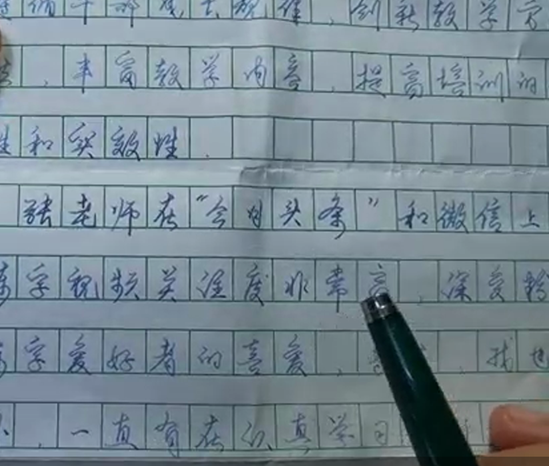 干部成长规律，创新教学方
，丰富教学内容，提高培训的
性和实效性．
张老师在“今日头条”和微信上
写字视频关注度非常高，深受粉
写字爱好者的喜爱，我也
，一直有在认真学习